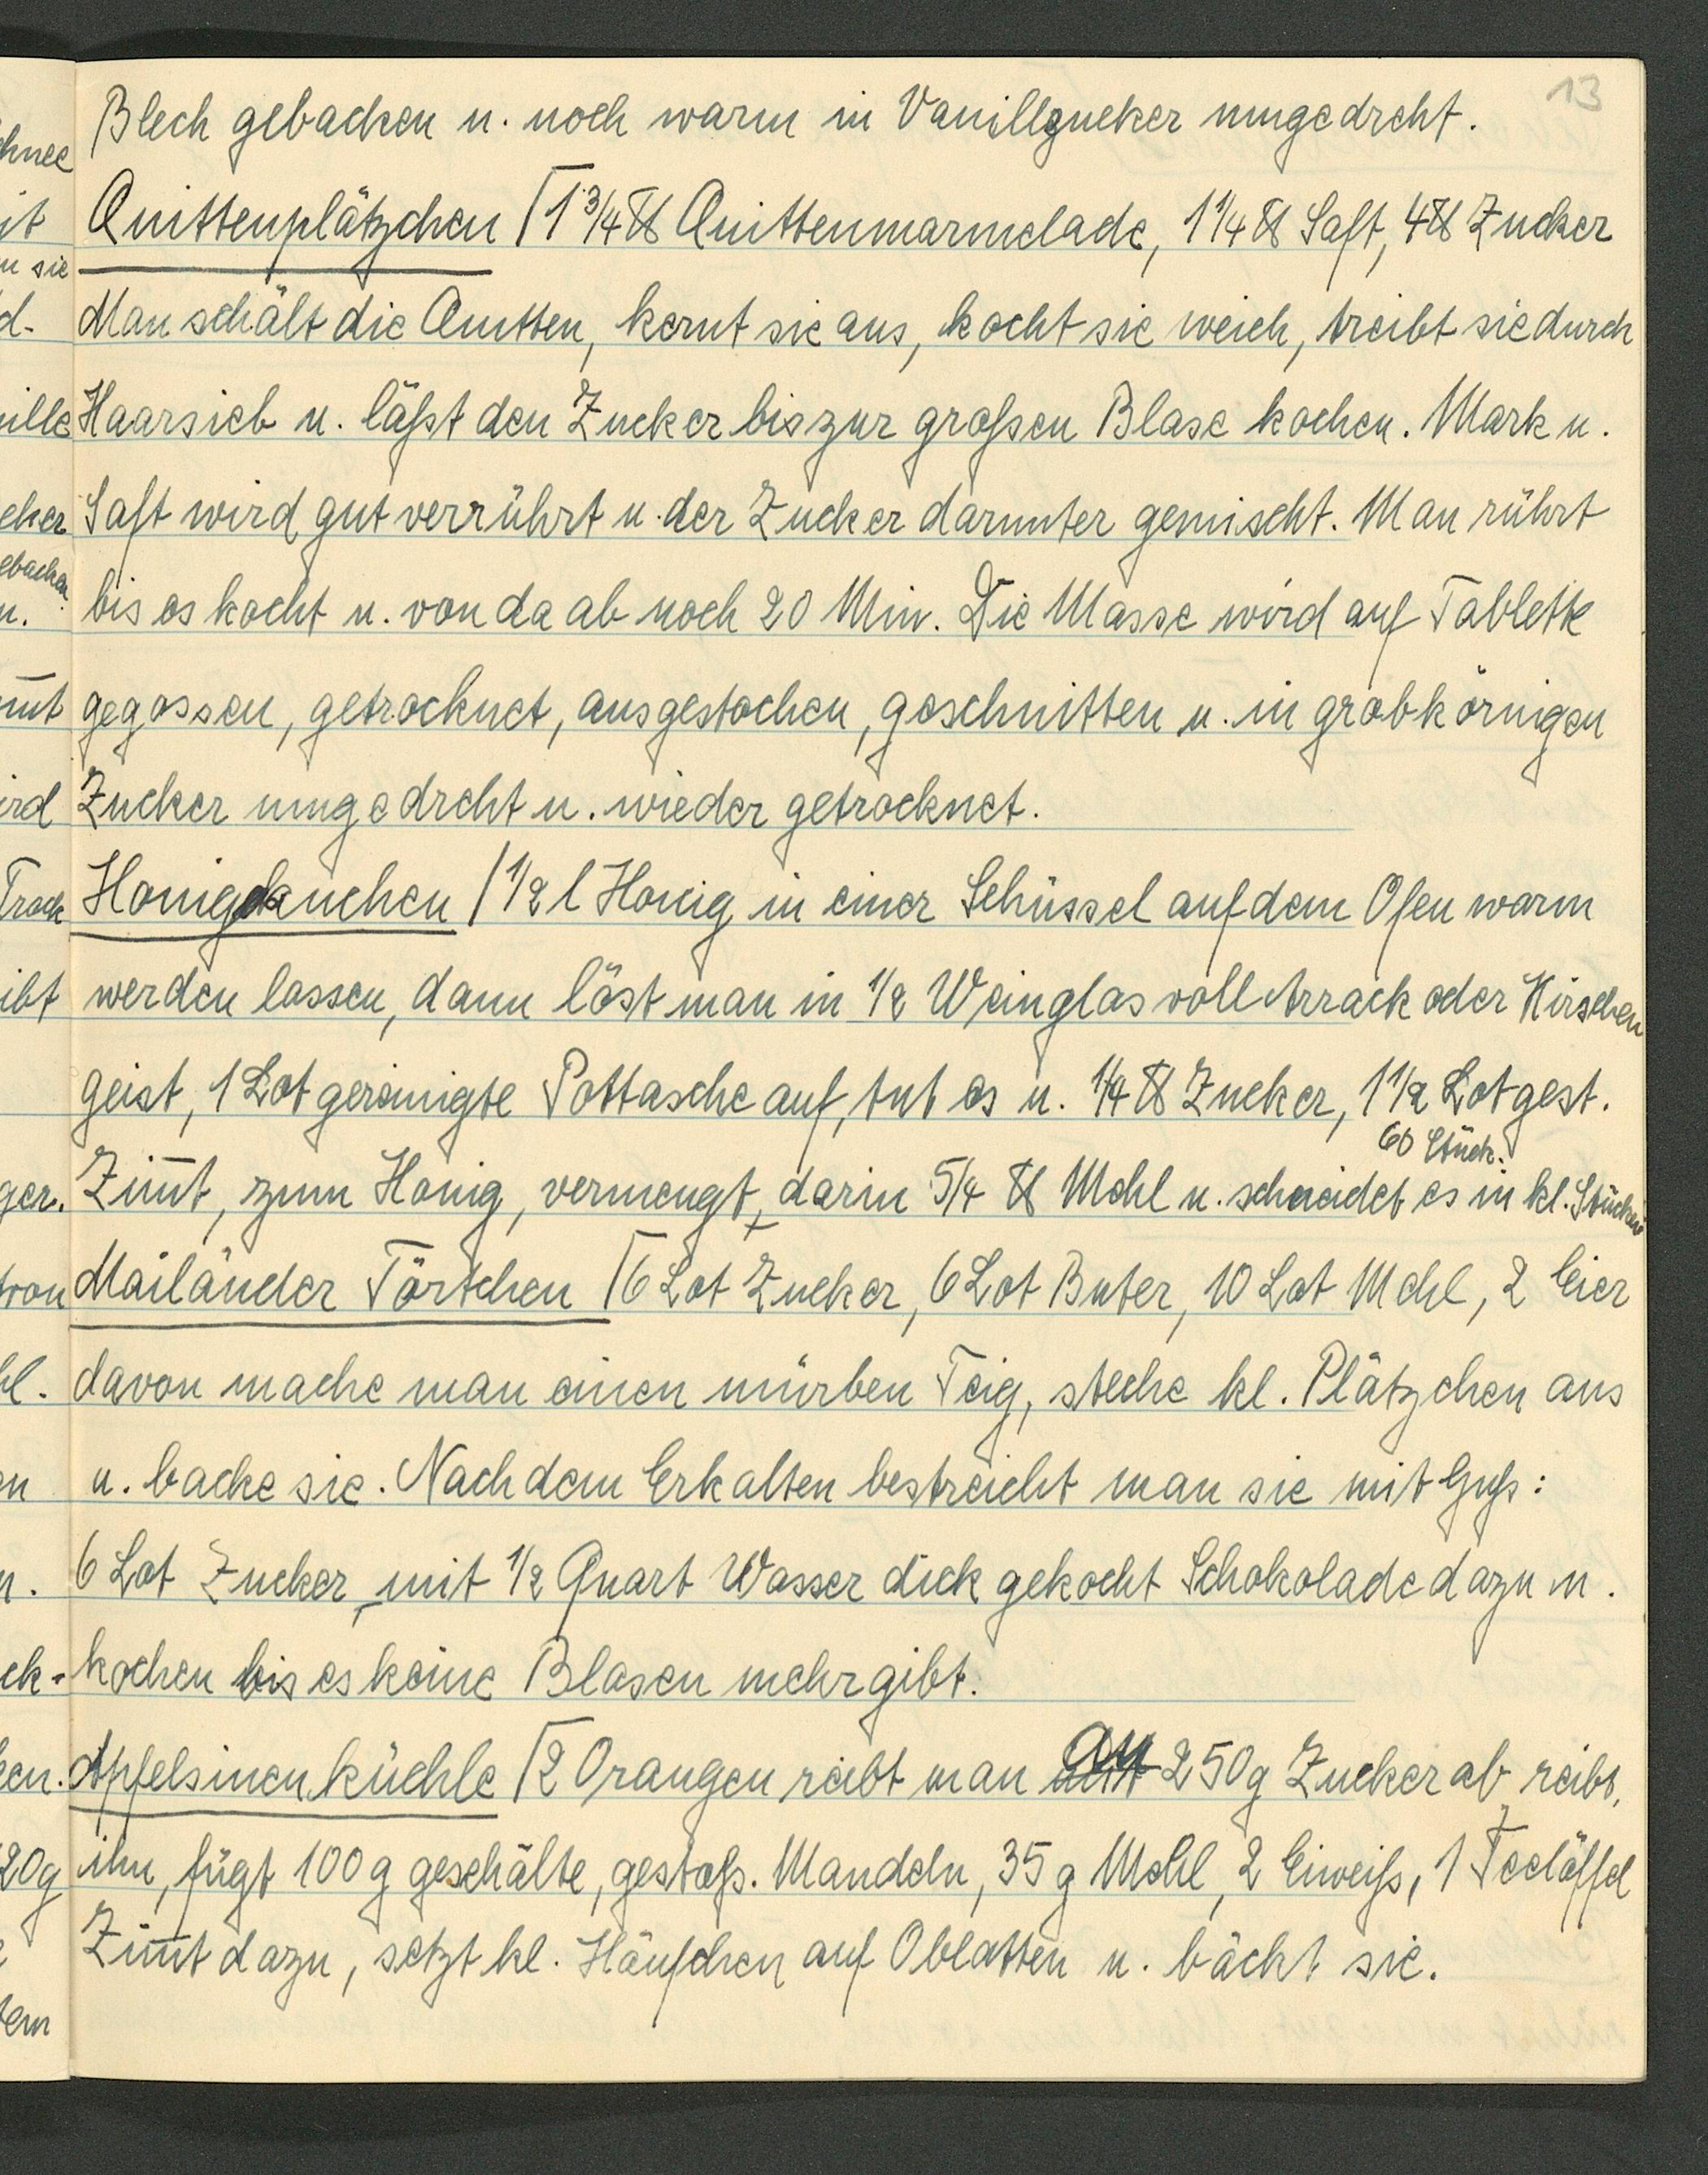 13
Blech gebacken u. noch warm in Vanillzucker umgedreht.
Quittenplätzchen | 1 3/4 ℔ Quittenmarmelade, 1 1/4 ℔ Saft, 4 ℔ Zucker
Man schält die Quitten, kernt sie aus, kocht sie weich, treibt sie durch
Haarsieb u. läßt den Zucker bis zur großen Blase kochen. Mark u.
Saft wird gut verrührt u. der Zucker darunter gemischt. Man rührt
bis es kocht u. von da ab noch 20 Min. Die Masse wird auf Tablette
gegossen, getrocknet, ausgestochen, geschnitten u. in grobkörnigen
Zucker umgedreht u. wieder getrocknet.
Honigkuchen | 1/2 l Honig in einer Schüssel auf dem Ofen warm
werden lassen, dann löst man in 1/2 Weinglas voll Arrack oder Kirschen
geist, 1 Lot gereinigte Pottasche auf, tut es u. 1/4 ℔ Zucker, 1 1/2 Lot gest.
60 Stück.
Zim̅t, zum Honig, vermengt, darin 5/4 ℔ Mehl u. schneidet es in kl. Stücken
Mailänder Törtchen | 6 Lot Zucker, 6 Lot Buter, 10 Lot Mehl, 2 Eier
davon mache man einen mürben Teig, steche kl. Plätzchen aus
u. backe sie. Nach dem Erkalten bestreicht man sie mit Guß:
6 Lot Zucker, mit 1/2 Quart Wasser dick gekocht Schokolade dazu u.
kochen bis es keine Blasen mehr gibt.
Apfelsinenküchle | 2 Orangen reibt man an 250g Zucker ab, reibt
ihn, fügt 100 g geschälte, gestoß. Mandeln, 35 g Mehl, 2 Eiweiß, 1 Teelöffel
Zim̅t dazu, setzt kl. Häufchen auf Oblatten u. bäckt sie.